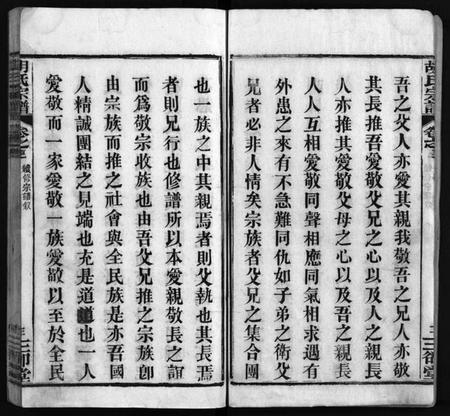 胡氏宗譜
卷之三
吾之父人亦愛其親我敬吾之兄人亦敬
其長推吾愛敬父兄之心以及人之親長
人亦推其愛敬父母之心以及吾之親長
人人互相愛敬同聲相應同氣相求遇有
外患之來有不急難同仇如子弟之衛父
兄者必非人情矣宗族者父兄之集合團
也一族之中其親焉者則父執也其長焉
者則兄行也修譜所以本愛親敬長之誼
而爲敬宗收族也由吾父兄推之宗族卽
由宗族而推之社會與全民族是亦吾國
人精誠團結之見端也充是道也一人
愛敬而一家愛敬一族愛敬以至於全民
胡氏宗譜
卷之三
續修宗譜叙